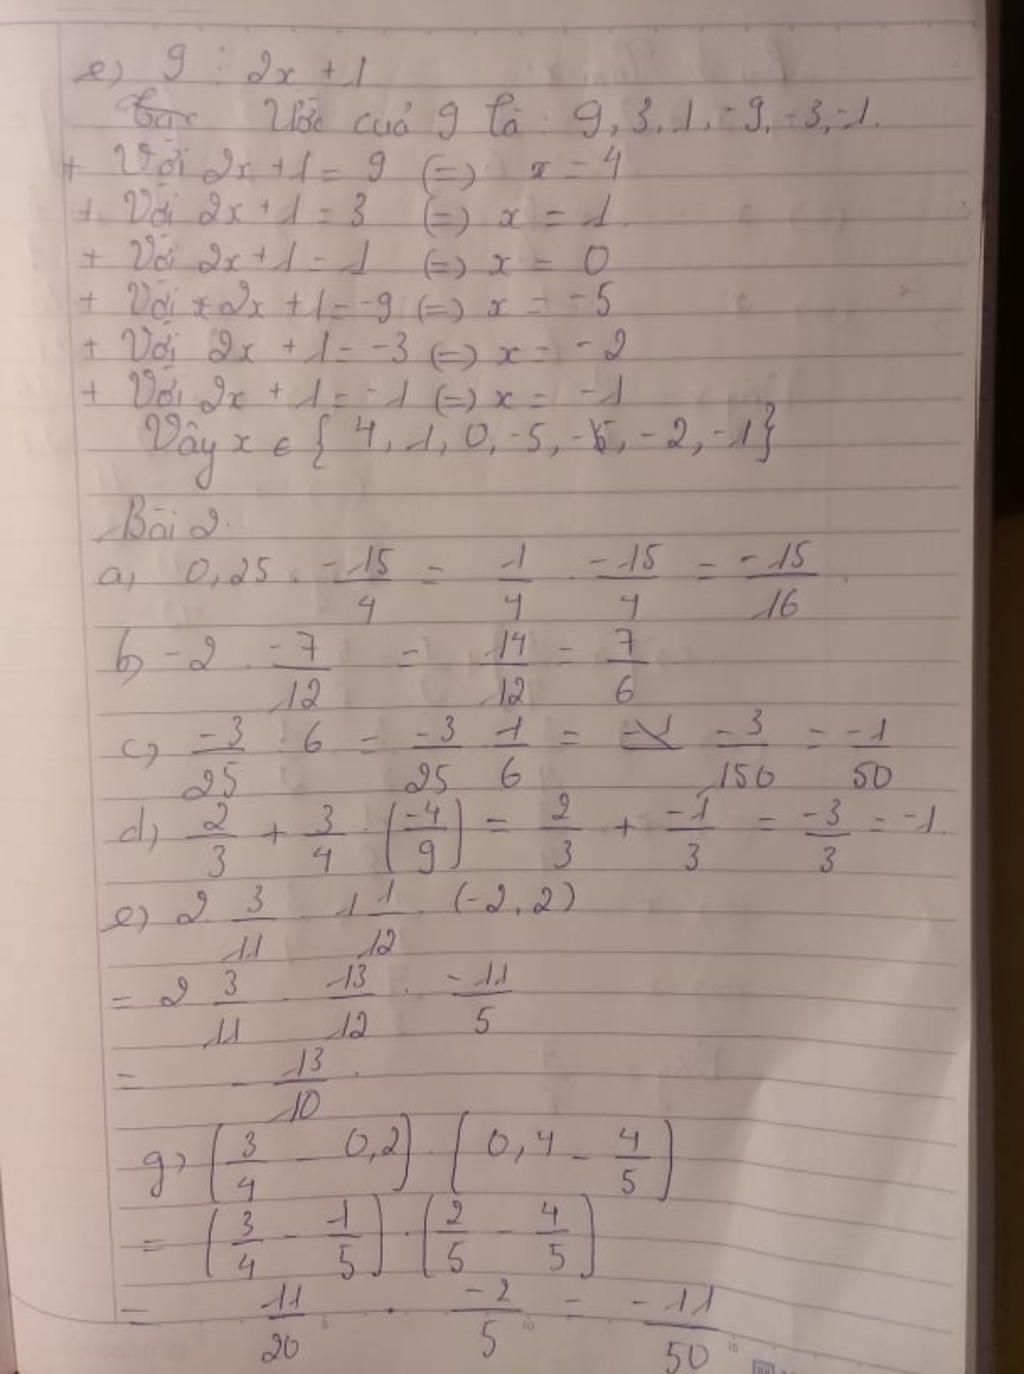 e) 9 ⋮ 2x + 1
Ước của 9 là : 9, 3, 1, -9, -3, -1.
+ Với 2x + 1 = 9 (=) x = 4
+ Với 2x + 1 = 3 (=) x = 1
+ Với 2x + 1 = 1 (=) x = 0
+ Với 2x + 1 = -9 (=) x = -5
+ Với 2x + 1 = -3 (=) x = -2
+ Với 2x + 1 = -1 (=) x = -1
Vậy x ∈ { 4, 1, 0, -5, -5, -2, -1}
Bài 2.
a, 0,25 . -15/4 = 1/4 . -15/4 = -15/16.
b) -2 . -7/12 = 14/12 = 7/6
c) -3/25 : 6 = -3/25 . 1/6 = -3/150 = -1/50
d) 2/3 + 3/4 . (-4/9) = 2/3 + -1/3 = -3/3 = -1.
e) 2 3/11 . 1 1/12 . (-2,2)
= 2 3/11 . 13/12 . -11/5
= - 13/10.
g) (3/4 - 0,2) . (0,4 - 4/5)
= (3/4 - 1/5) . (2/5 - 4/5)
= 11/20 . -2/5 = -11/50